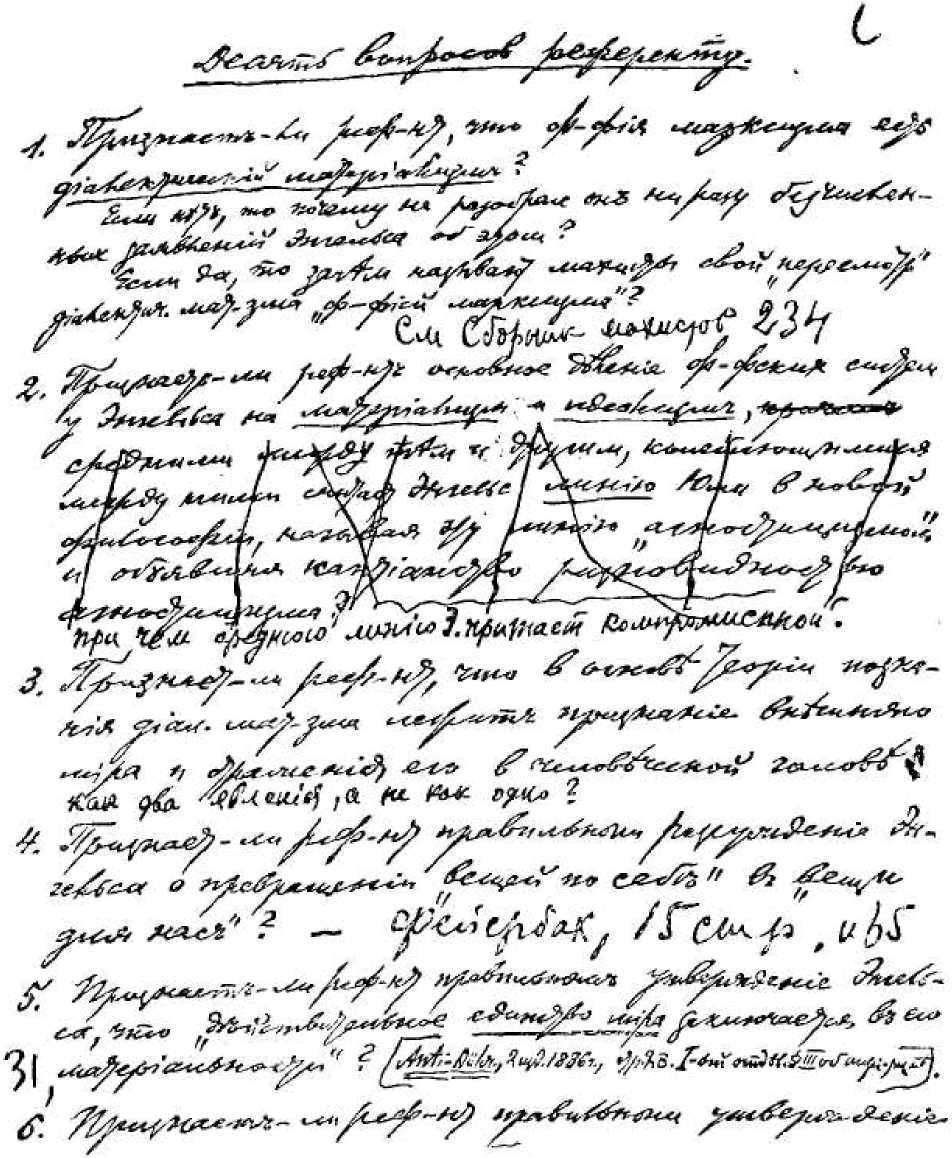 Десять вопросов референту.
1. Признаетъ-ли реф-нт, что ф-фія марксизма есть
діалектический матеріализмъ?
Если нѣтъ, то почему не разобрал онъ ни разу безчислен-
ных заявленій Энгельса об этом?
Если да, то зачѣм называют махисты свой „пересмотр"
діалектич. мат-зма „ф-фіей марксизма"?
См Сборник махистов 234
2. Признает-ли реф-нтъ основное дѣленіе ф-фских систем
у Энгельса на матеріализм и идеализмъ,
средними между тѣм и другим, колеблющимися
между ними считает Энгельс линію Юма в новой
философіи, называя эту линію „агностицизмом"
и объявляя кантіанство разновидностью
агностицизма?
при чем среднюю линію Э. считает компромиссной?
3. Признает-ли реф-нт, что в основѣ теоріи позна-
нія діал. мат-зма лежитъ признаніе внѣшняго
міра и отраженія его в человѣческой головѣ
как два явленія, а не как одно?
4. Признает-ли реф-нт правильным разсужденіе Эн-
гельса о превращеніи „вещей по себѣ" въ „вещи
для нас"? — Фейербах, 15 стр., и 65
5. Признаетъ-ли реф-нт правильнымъ утвержденіе Энгель-
са, что „дѣйствительное единство міра заключается въ его
31, матеріальности"? (Anti-Dühr., 2 изд. 1886 г., стр. 28. I-ый отдѣл. § III об).
6. Признаетъ-ли реф-нт правильным утвержденіе